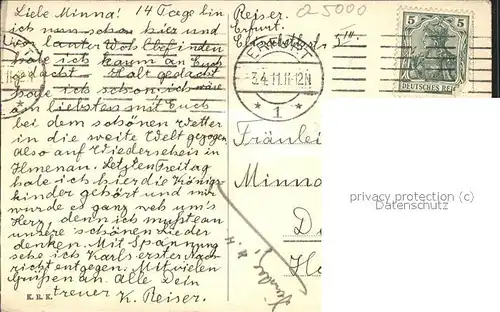 Liebe Minna! 14 Tage bin
ich nun schon hier und
vor lauter Wohlbefinden
habe ich kaum an Euch
gedacht. Halt gedacht
habe ich schon, ich wäre
am liebsten mit Euch
bei dem schönen Wetter
in die weite Welt gezogen.
Also auf Wiedersehen in
Ilmenau. Letzten Freitag
habe ich hier die Königs-
kinder gehört und mir
wurde es ganz weh um's
Herz, denn ich mußte an
unsere schönen Lieder
denken. Mit Spannung
sehe ich Karls erster Nach-
richt entgegen. Mit vielen
Grüßen an alle Dein
treuer K. Reiser.
K. R. K.
Reiser.
Erfurt.
5 III
a 5000
ERFURT
3.4.11.11-12N
* 1 *
5 5
DEUTSCHES REICH
Fräulei
Minna
privacy protection (c)
Datenschutz
D